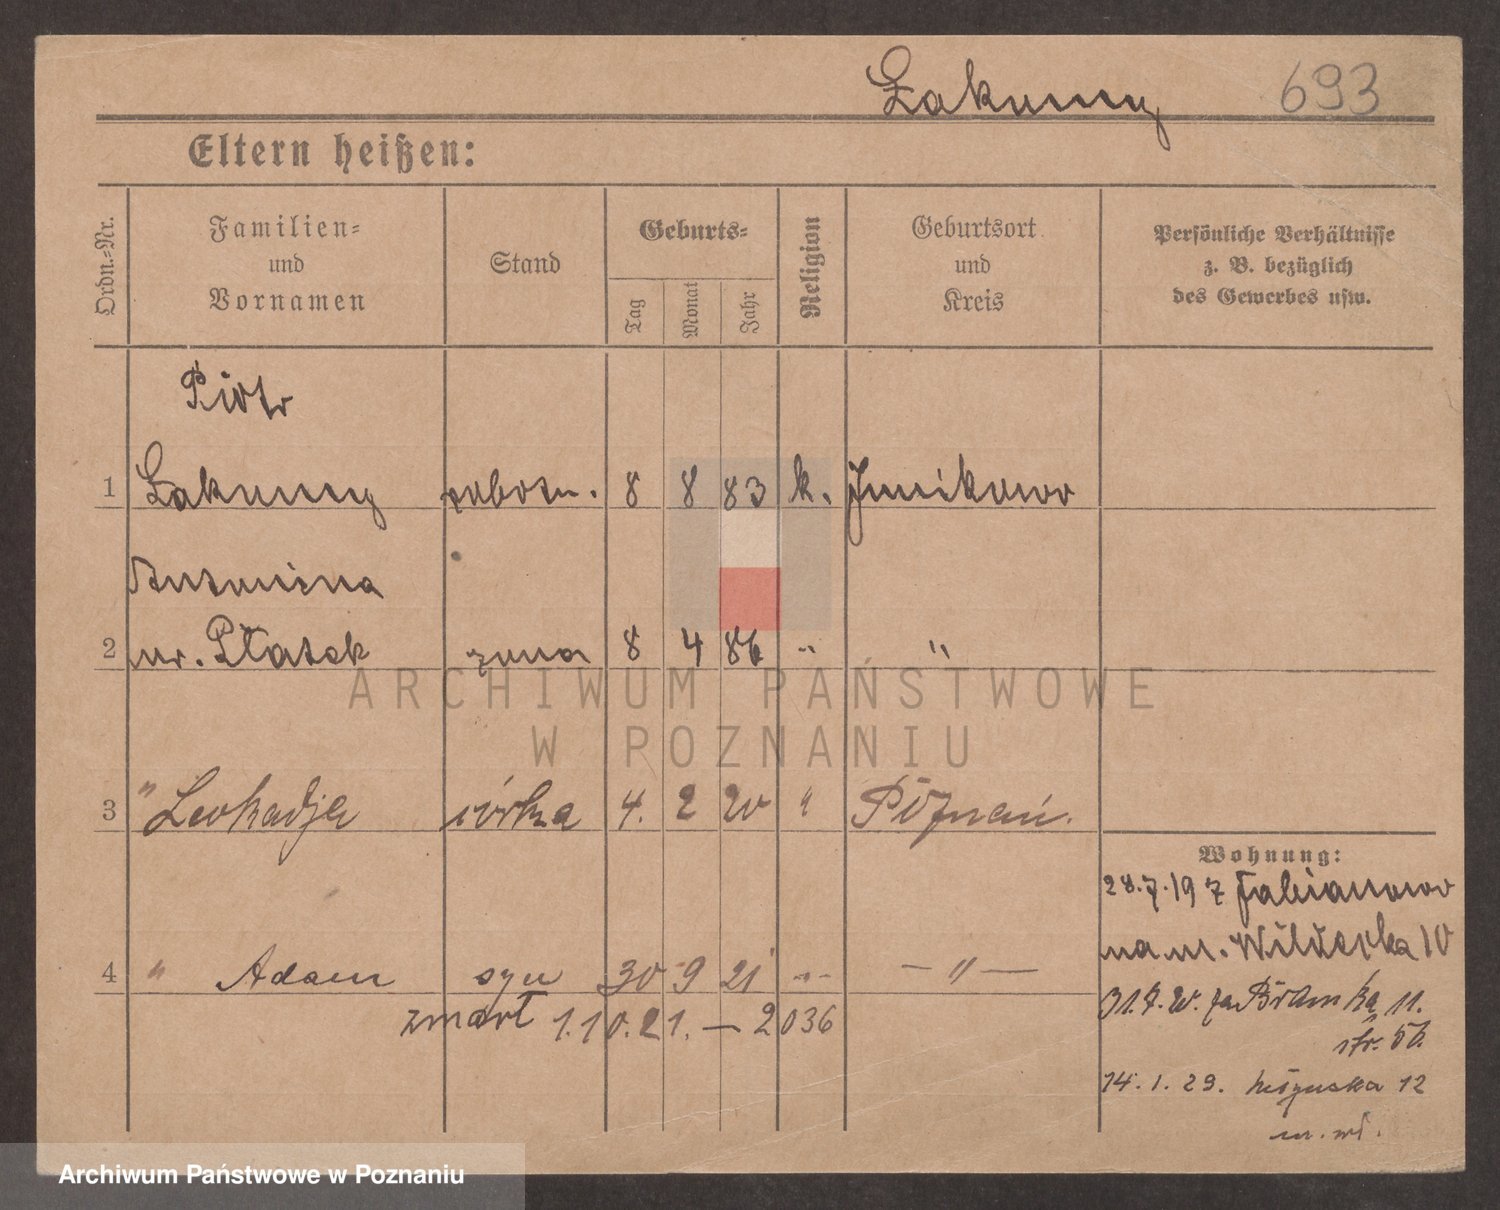 Łakumy 693
Eltern heißen:
Ordn.-Nr.
Familien-
und
Vornamen
Stand
Geburts-
Tag
Monat
Jahr
Religion
Geburtsort
und
Kreis
Persönliche Verhältnisse
z. B. bezüglich
des Gewerbes usw.
Piotr
1 robotn. 8 8 83 k. Junikowo
Antonina
2 ur. Ptaszk żona 8 4 86 " "
3 " Leokadja córka 4. 2 20 " Poznań.
4 " Adam syn 30 9 21 " — " —
zmarł 1.10.21. — 2036
Wohnung:
28.7.197 Fabianowo
na m. 10
31.7. W. za Bramką 11.
str. 56.
14.1.29. 12
m. wł.
ARCHIWUM PAŃSTWOWE
W POZNANIU
Archiwum Państwowe w Poznaniu